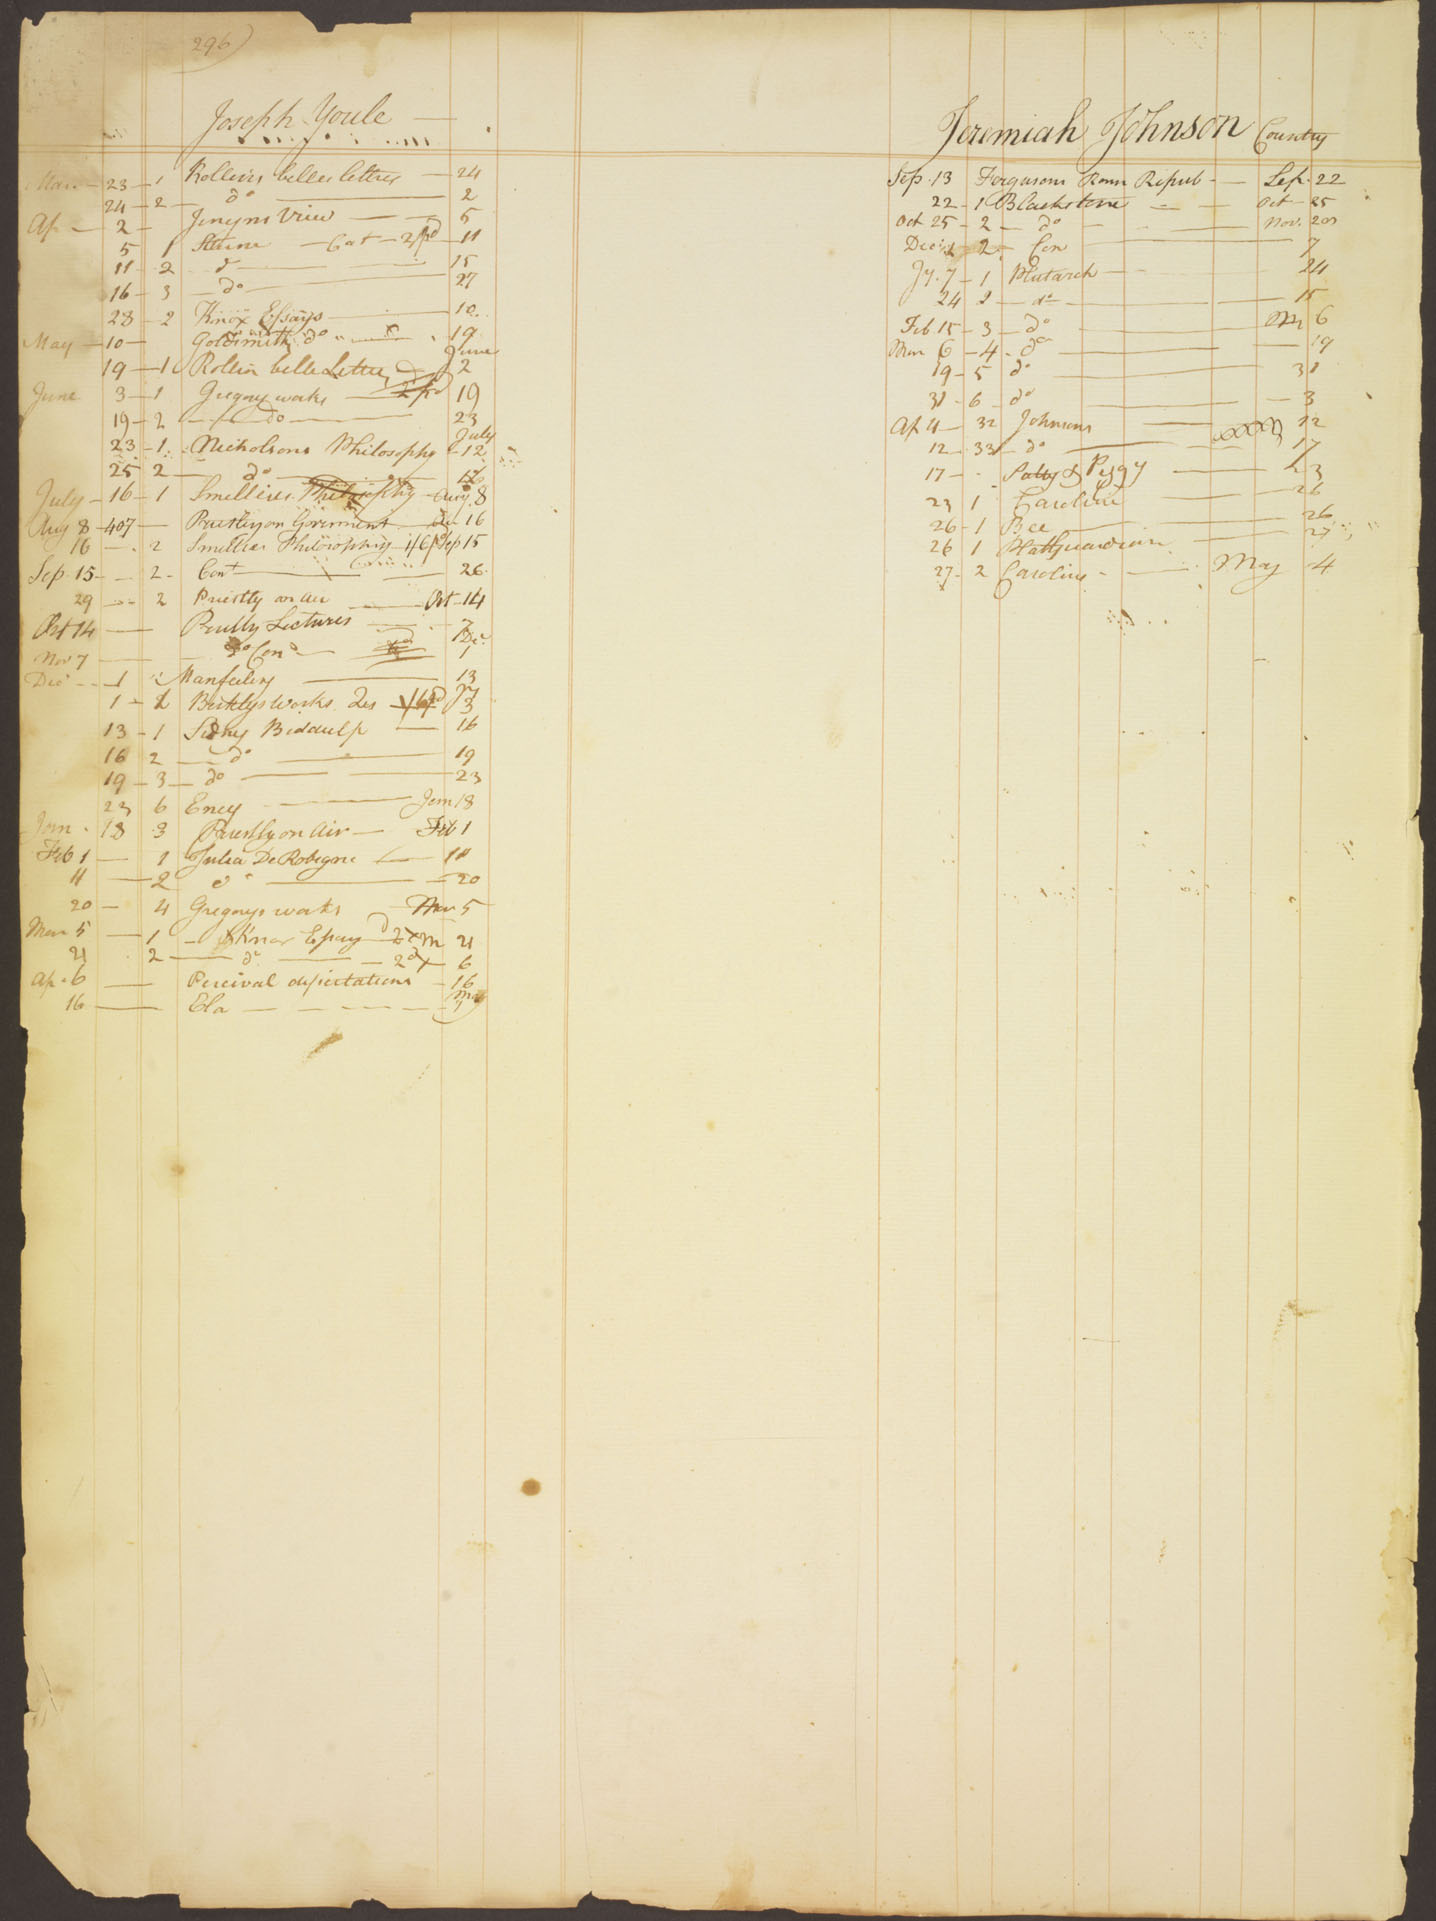 296)
Joseph Youle
Mar 23 - 1 Rollins belles lettres - 24
24 - 2 - do 2
Ap - 2 - Jenyns View - 5
5 1 Sterne - 6 at - 2/ pd 11
11 - 2 do 15
16 - 3 - do 27
28 - 2 Knox Essays 10
May - 10 - Goldsmith do 19
June
19 - 1 Rollin belle Lettre 2
June 3 - 1 Gregory works 19
19 - 2 do 23
July
23 - 1 Nicholsons Philosophy - 12
25 2 do 16
July - 16 - 1 Smellies Philosophy Aug. 8
Aug 8 - 407 - Priestly on Goverment Au 16
16 - 2 Smellies Philosophy - 1/6 pd Sep 15
Sep. 15 - 2 - Cont 26
29 - 2 Priestly on air Oct - 14
Oct 14 - Priestly Lectures 7
Nov 7 do Cond Dec 1
Dec - 1 Manfeeling 13
1 - 2 Berklys works 2 3
13 - 1 Sidny Biddulp 16
16 2 do 19
19 - 3 - do 23
23 6 Ency Jan 18
Jan. 18 3 Priestly on Air - Feb 1
Feb 1 - 1 Julia De Robigne 11
11 - 2 do 20
20 - 4 Gregorys works Mar 5
Mar 5 - 1 - Knox Essay 21
21 2 do 6
Ap. 6 - Percival dissertations - 16
16 - Ela - May 1
Jeremiah Johnson Country
Sep. 13 Fergusons Rom Repub - Sep. 22
22 - 1 Blackstone - Oct - 25
Oct 25 - 2 - do - Nov. 20
Dec 2 - Con 7
Jy. 7 - 1 Plutarch 24
24 2 - do 15
Feb 15 - 3 - do Mr 6
Mar 6 - 4 - do 19
19 - 5 do 31
31 - 6 - do - 3
Ap 4 - 32 Johnsons 12
12 - 33 - do 17
17 - Sally & Pegy 23
23 1 Caroline 26
26 - 1 Bee 26
26 1 Platt guardian 27
27 - 2 Caroline - May 4